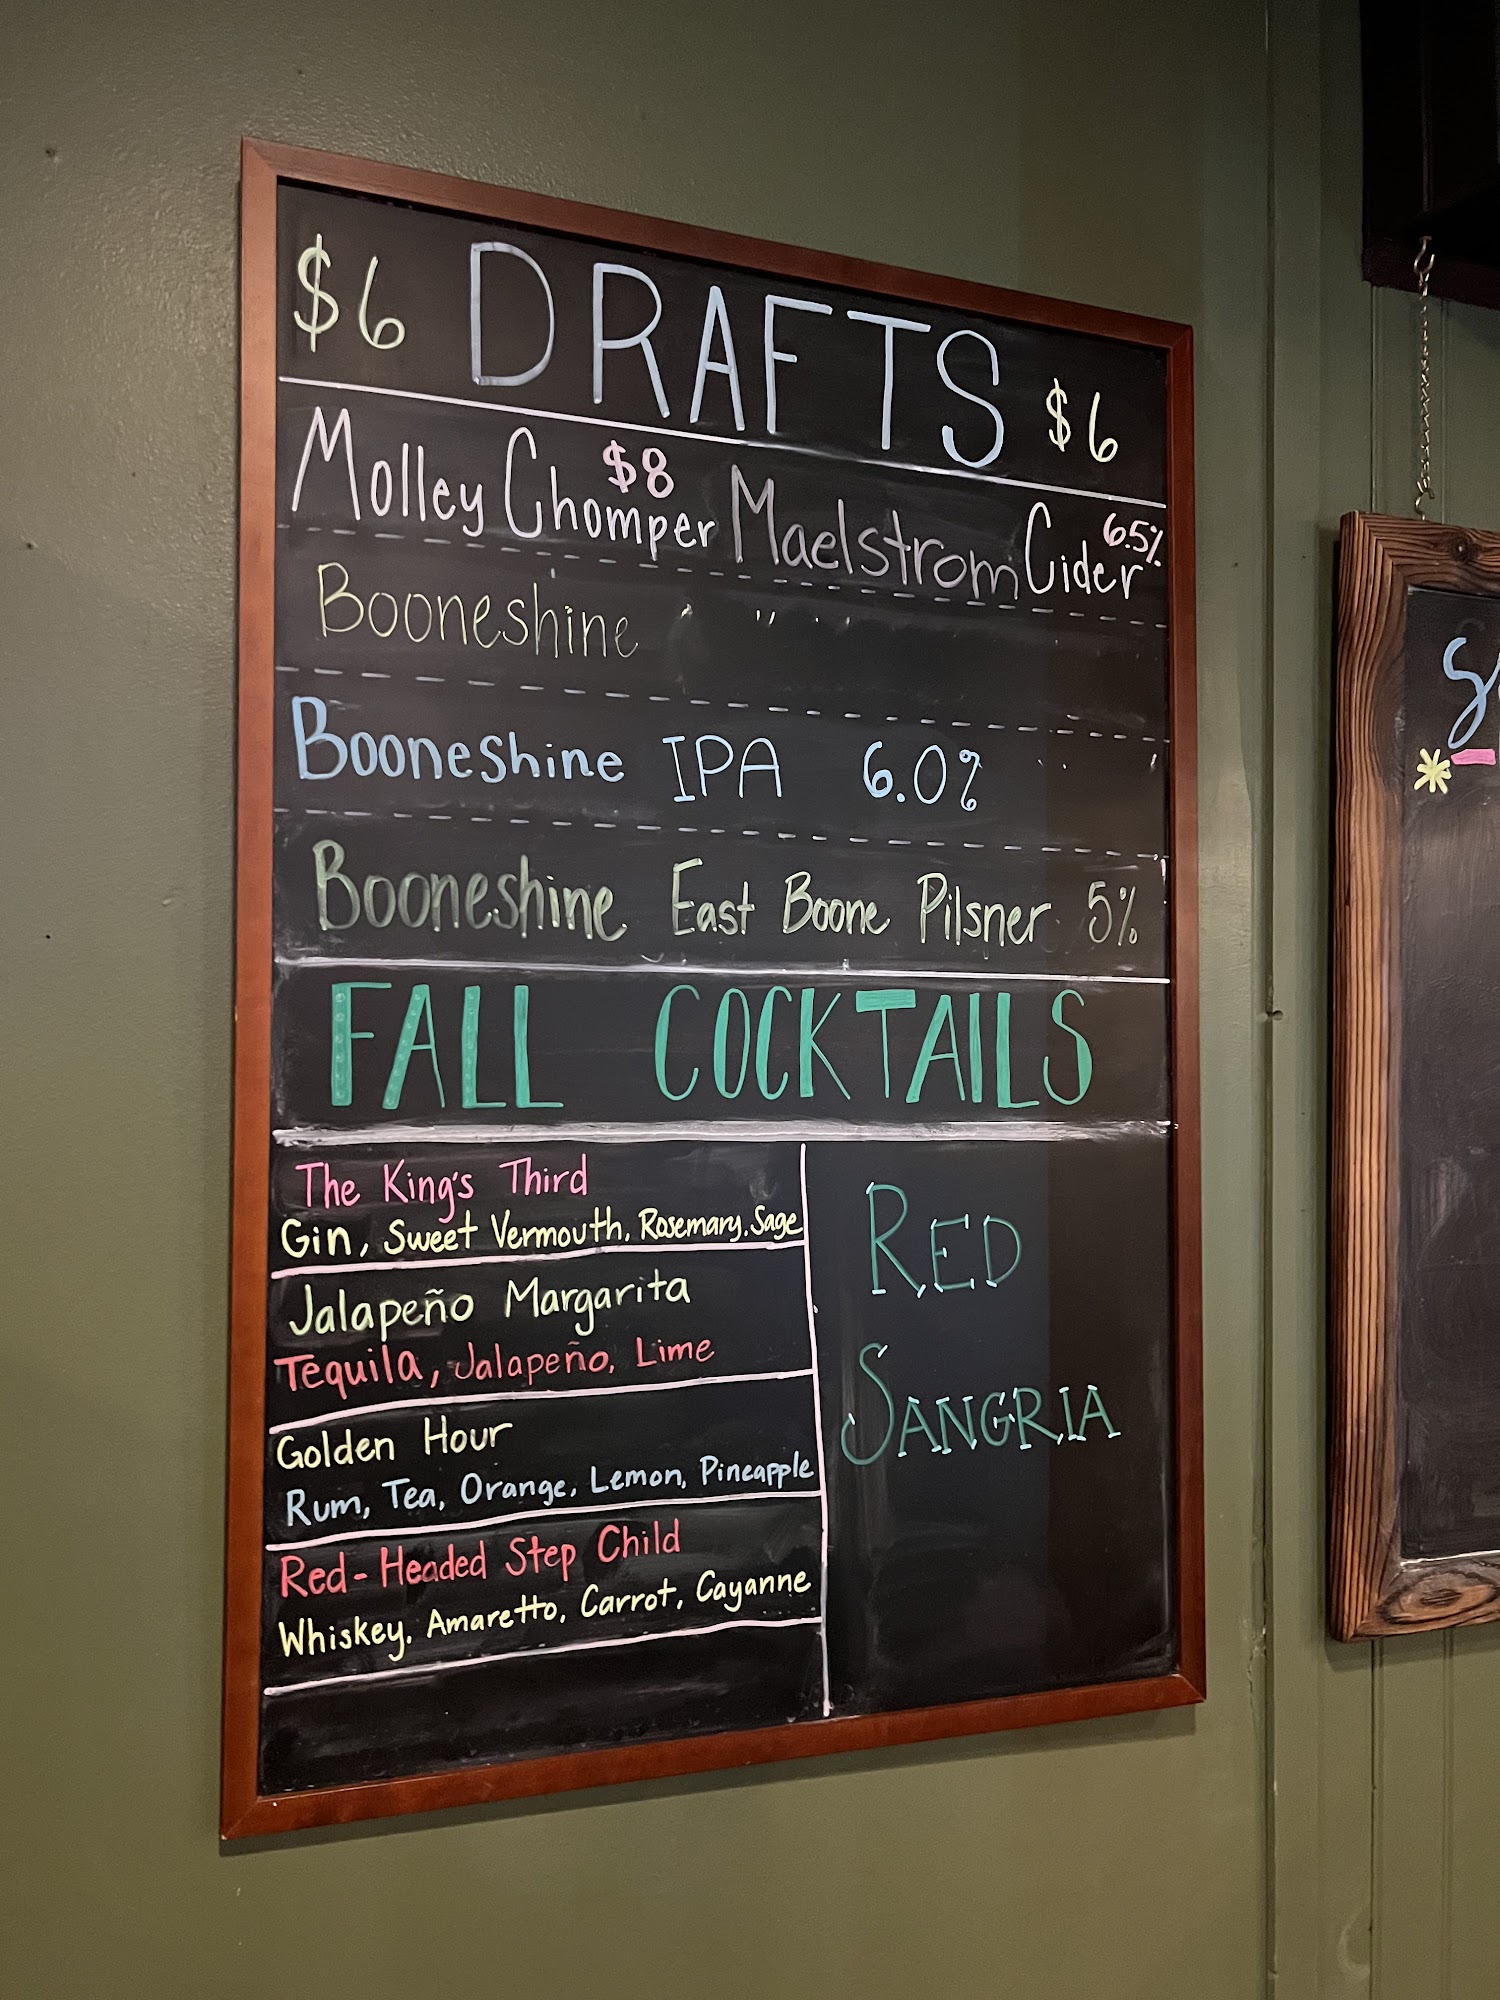 $6 DRAFTS $6
$8
Molley Chomper Maelstrom Cider 6.5%
Booneshine
Booneshine IPA 6.0%
Booneshine East Boone Pilsner 5%
FALL COCKTAILS
The King's Third
Gin, Sweet Vermouth, Rosemary, Sage
Jalapeño Margarita
Tequila, Jalapeño, Lime
Golden Hour
Rum, Tea, Orange, Lemon, Pineapple
Red-Headed Step Child
Whiskey, Amaretto, Carrot, Cayanne
RED
SANGRIA